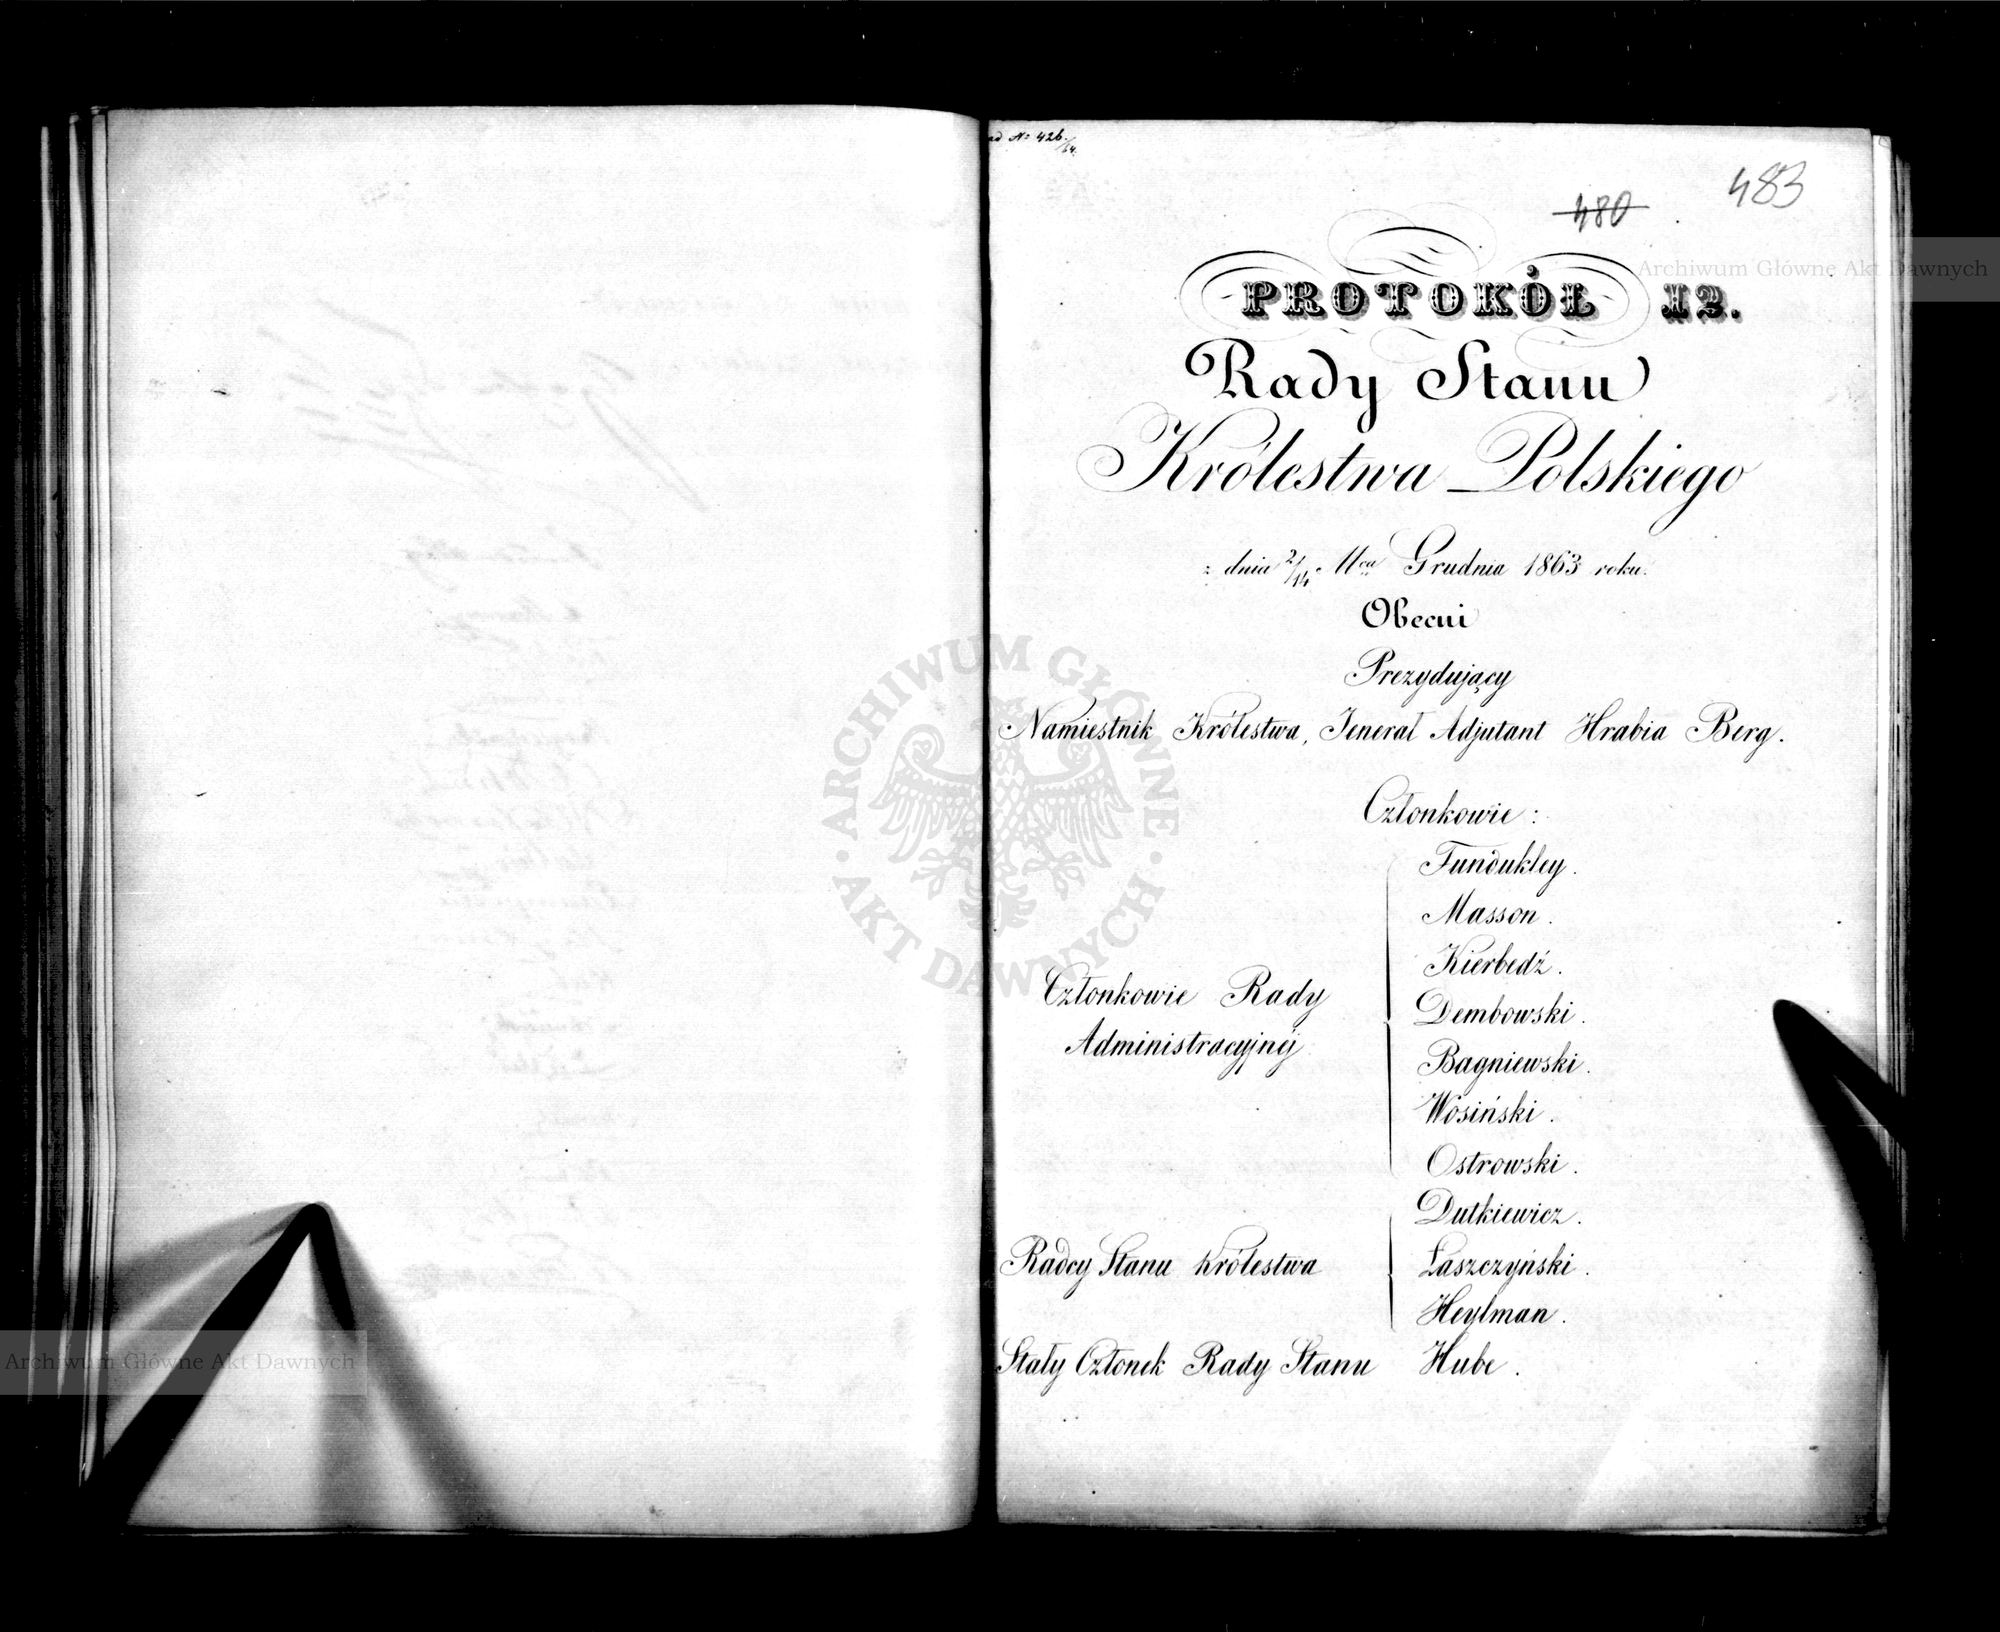 ad № 426/64.
483
480
PROTOKÓŁ 12.
Rady Stanu
Królestwa Polskiego
z dnia 2/14 Mca Grudnia 1863 roku.
Obecni
Prezydujący
Namiestnik Królestwa, Jenerał Adjutant Hrabia Berg.
Członkowie:
Członkowie Rady
Administracyjnéj
Fundukley.
Masson.
Kierbedź.
Dembowski.
Bagniewski.
Wosiński.
Ostrowski.
Radcy Stanu Królestwa
Dutkiewicz.
Łaszczyński.
Heylman.
Stały Członek Rady Stanu Hube.
Archiwum Główne Akt Dawnych
ARCHIWUM GŁÓWNE AKT DAWNYCH
Archiwum Główne Akt Dawnych